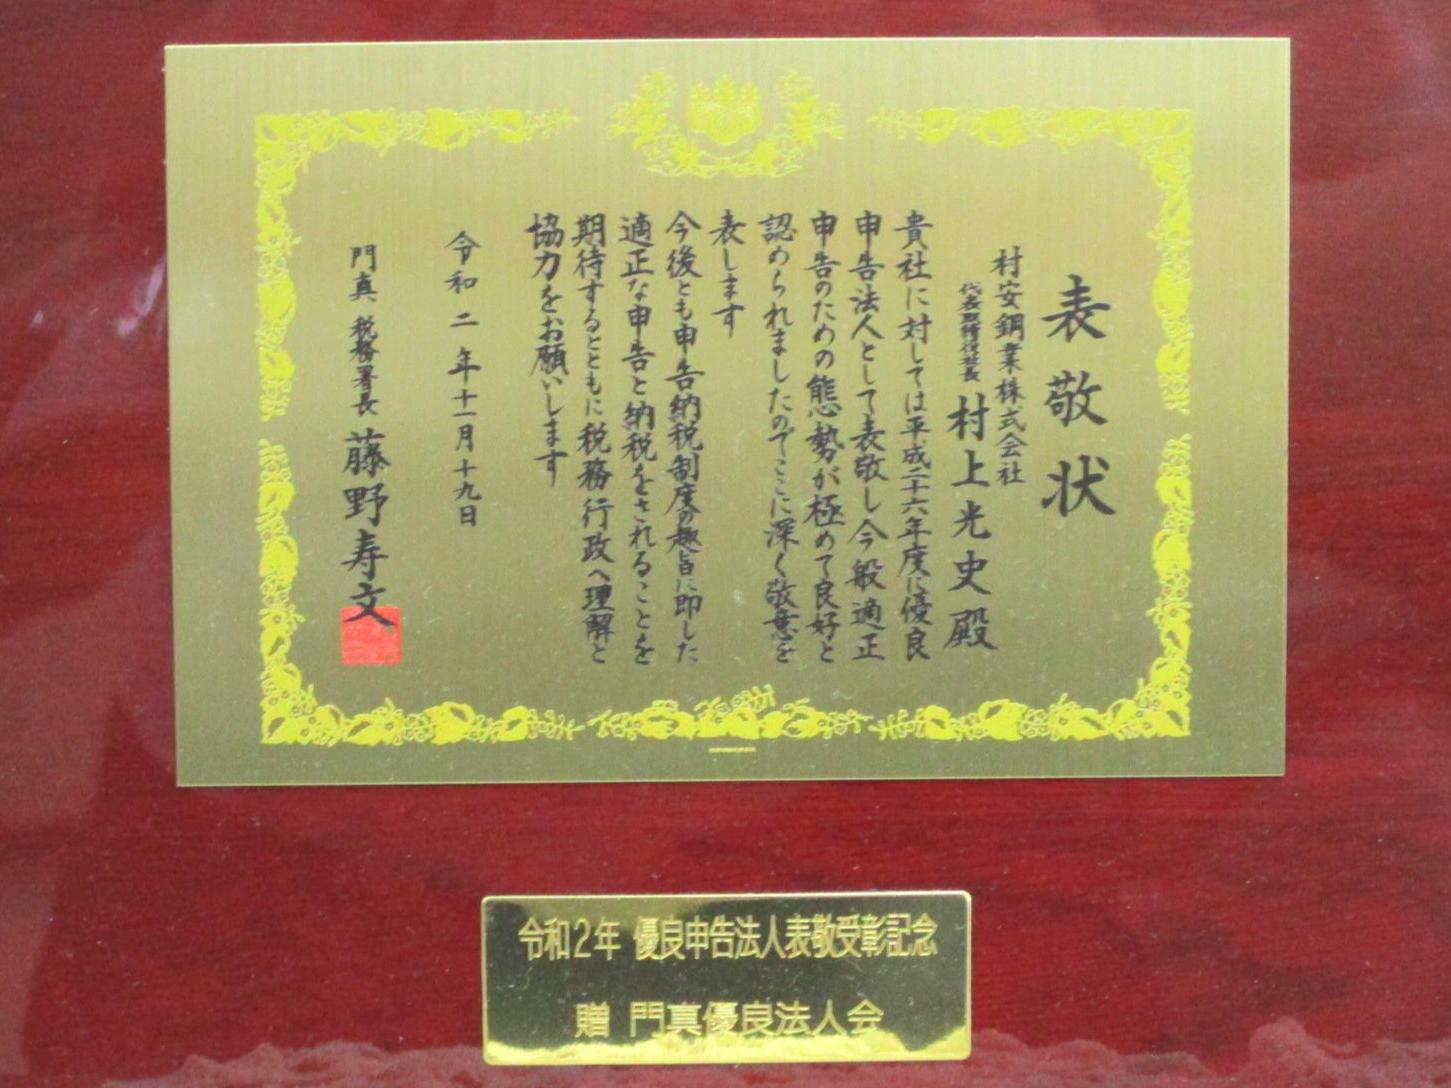 表敬状
村安鋼業株式会社
代表取締役社長 村上光史殿
貴社に対しては平成二十六年度に優良
申告法人として表敬し今般適正
申告のための態勢が極めて良好と
認められましたのでここに深く敬意を
表します
今後とも申告納税制度の趣旨に即した
適正な申告と納税をされることを
期待するとともに税務行政へ理解と
協力をお願いします
令和二年十一月十九日
門真税務署長 藤野寿文
令和2年 優良申告法人表敬受彰記念
贈 門真優良法人会